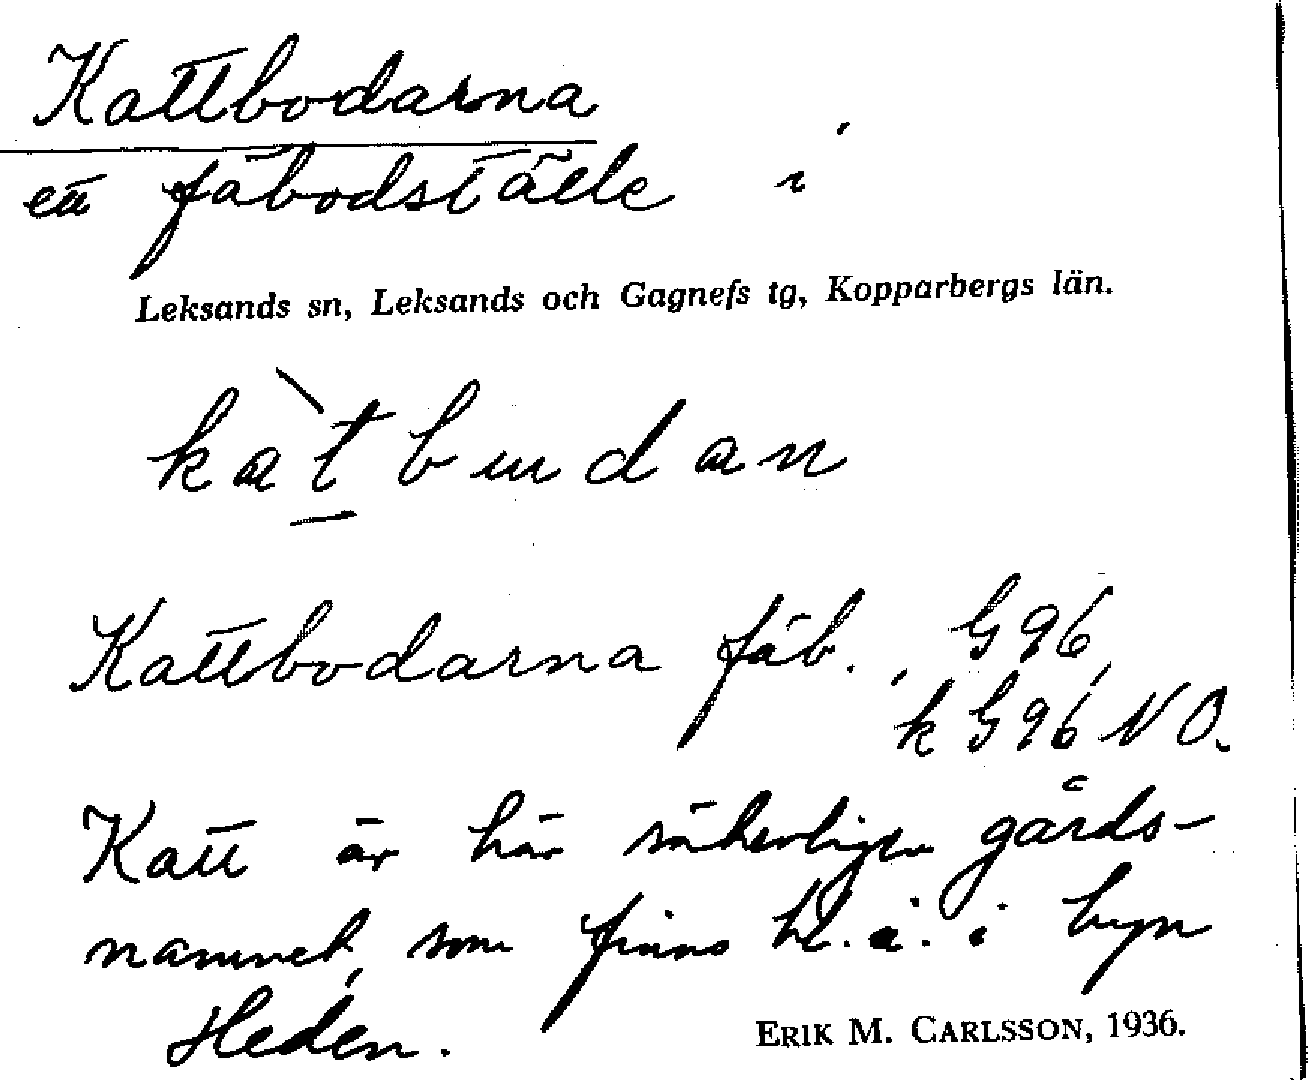 Kattbodarna
ett fäbodställe i
Leksands sn, Leksands och Gagnefs tg, Kopparbergs län.
kàt budan
Kattbodarna fäb., G 96,
k G 96 NO.
Katt är här säkerligen gårds-
namnet, som finns bl. a. i byn
Heden.
ERIK M. CARLSSON, 1936.